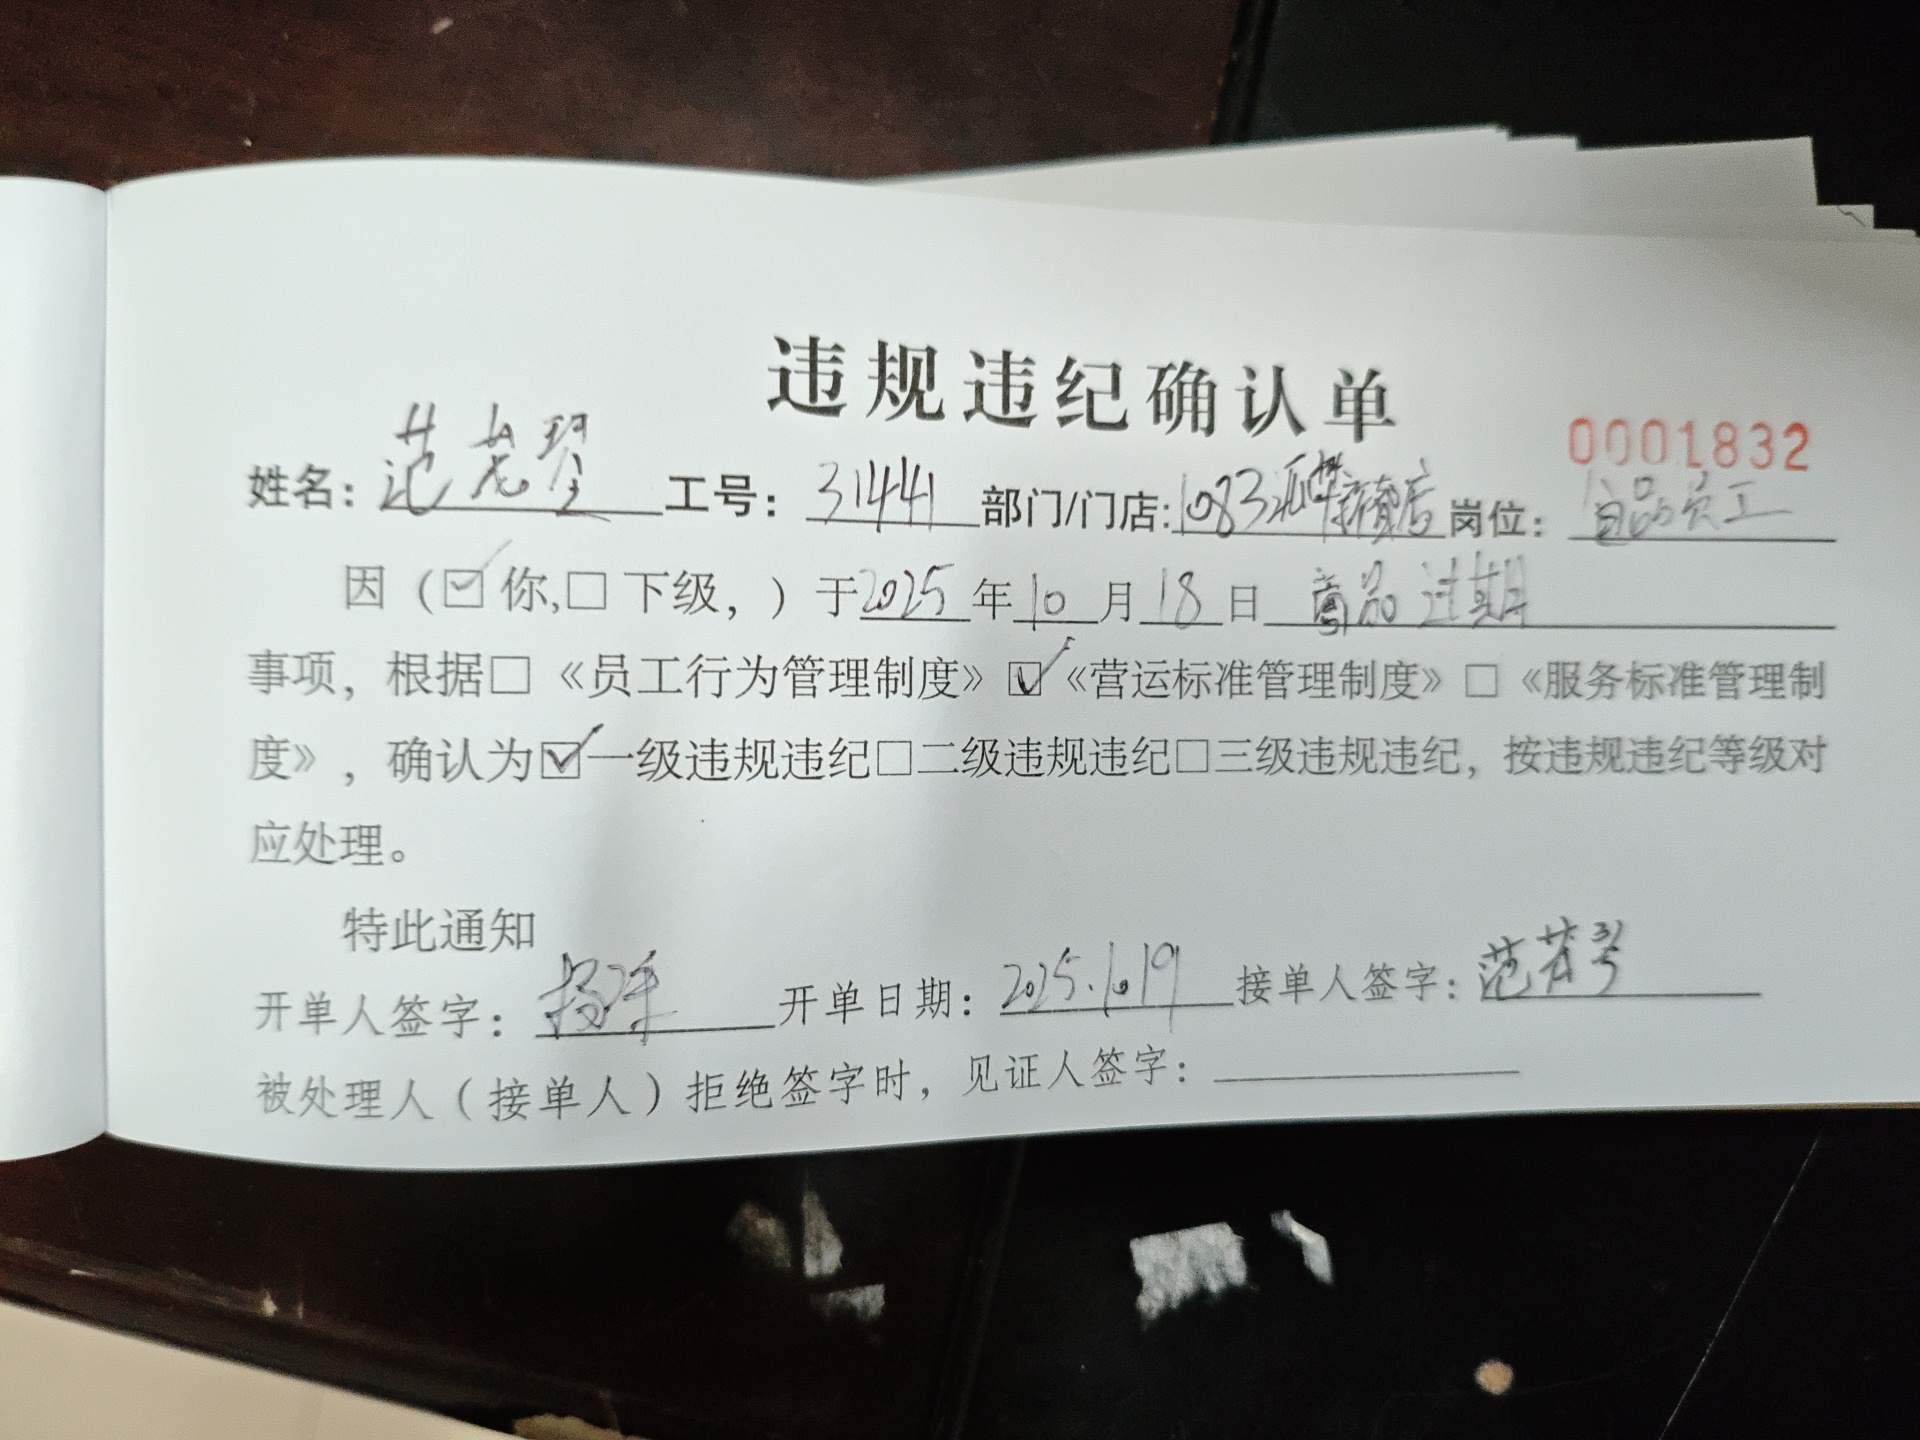 违规违纪确认单
0001832
姓名： 范 琴 工号： 31441 部门/门店: 1083 店 岗位： 食品员工
因（☑ 你,□ 下级，）于 2025 年 10 月 18 日 商品过期
事项，根据□《员工行为管理制度》☑《营运标准管理制度》□《服务标准管理制
度》，确认为☑一级违规违纪□二级违规违纪□三级违规违纪，按违规违纪等级对
应处理。
特此通知
开单人签字： 开单日期： 2025.10.19 接单人签字： 范
被处理人（接单人）拒绝签字时，见证人签字：